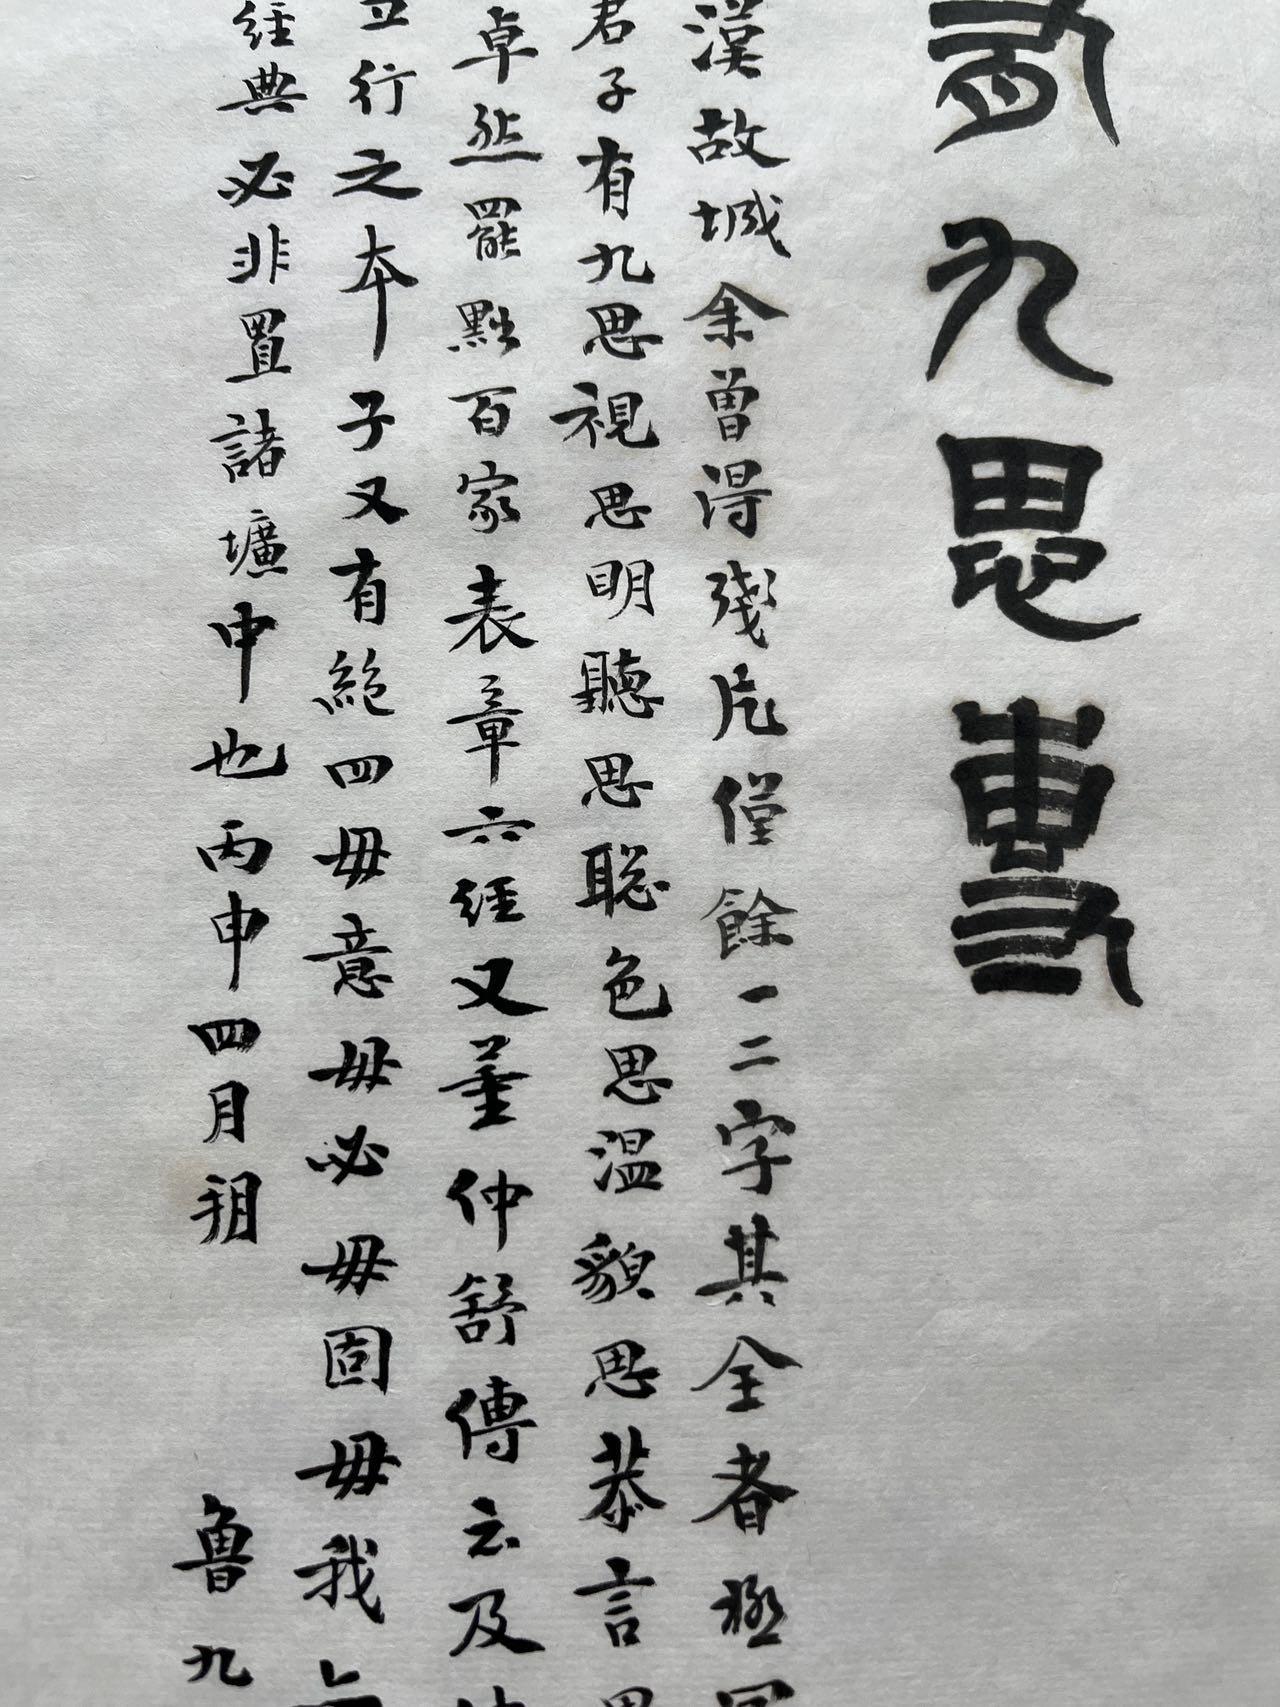 有九思事
漢故城余曾得殘片僅餘一二字其全者極
君子有九思視思明聽思聰色思溫貌思恭言思
卓然罷黜百家表章六經又董仲舒傳云及
立行之本子又有絕四毋意毋必毋固毋我
經典必非置諸壙中也丙申四月朔
魯九